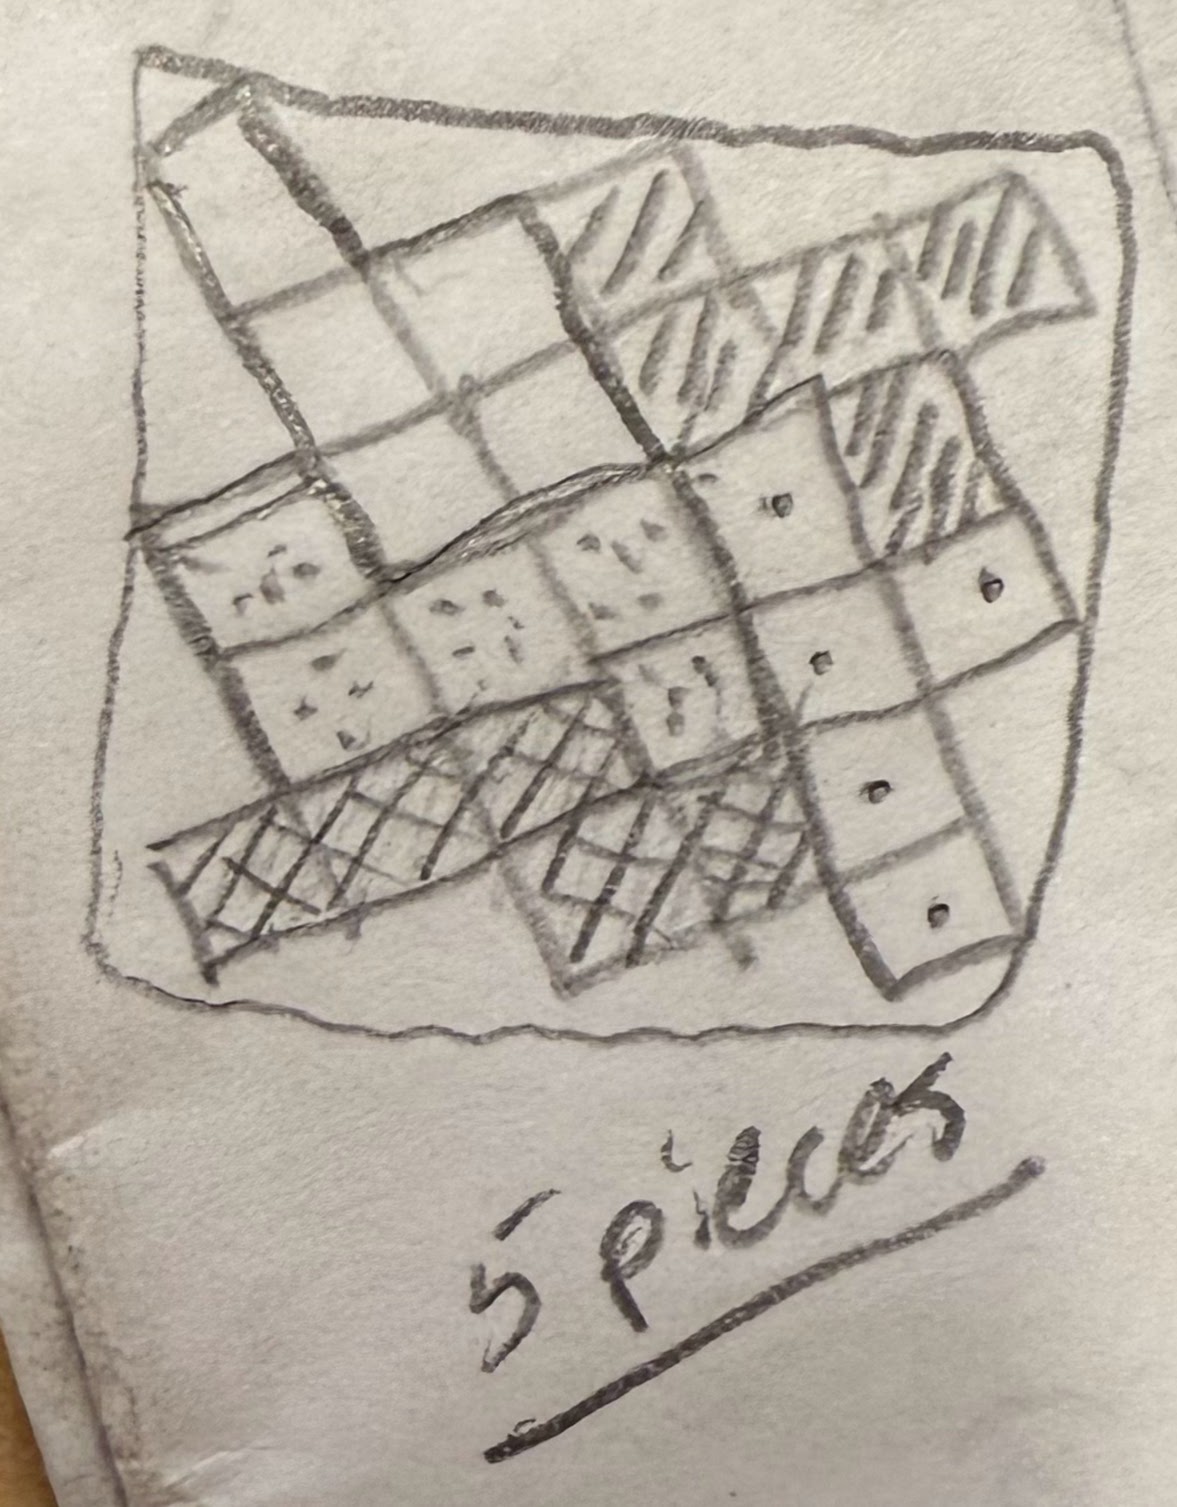 5 pieces